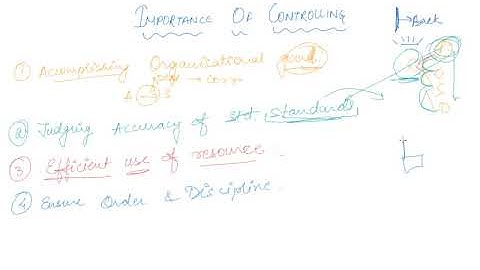 IMPORTANCE OF CONTROLLING
Back
① Accomplishing Organisational goal
A → S
② Judging Accuracy of std standard
③ Efficient use of resource.
④ Ensure Order & Discipline.